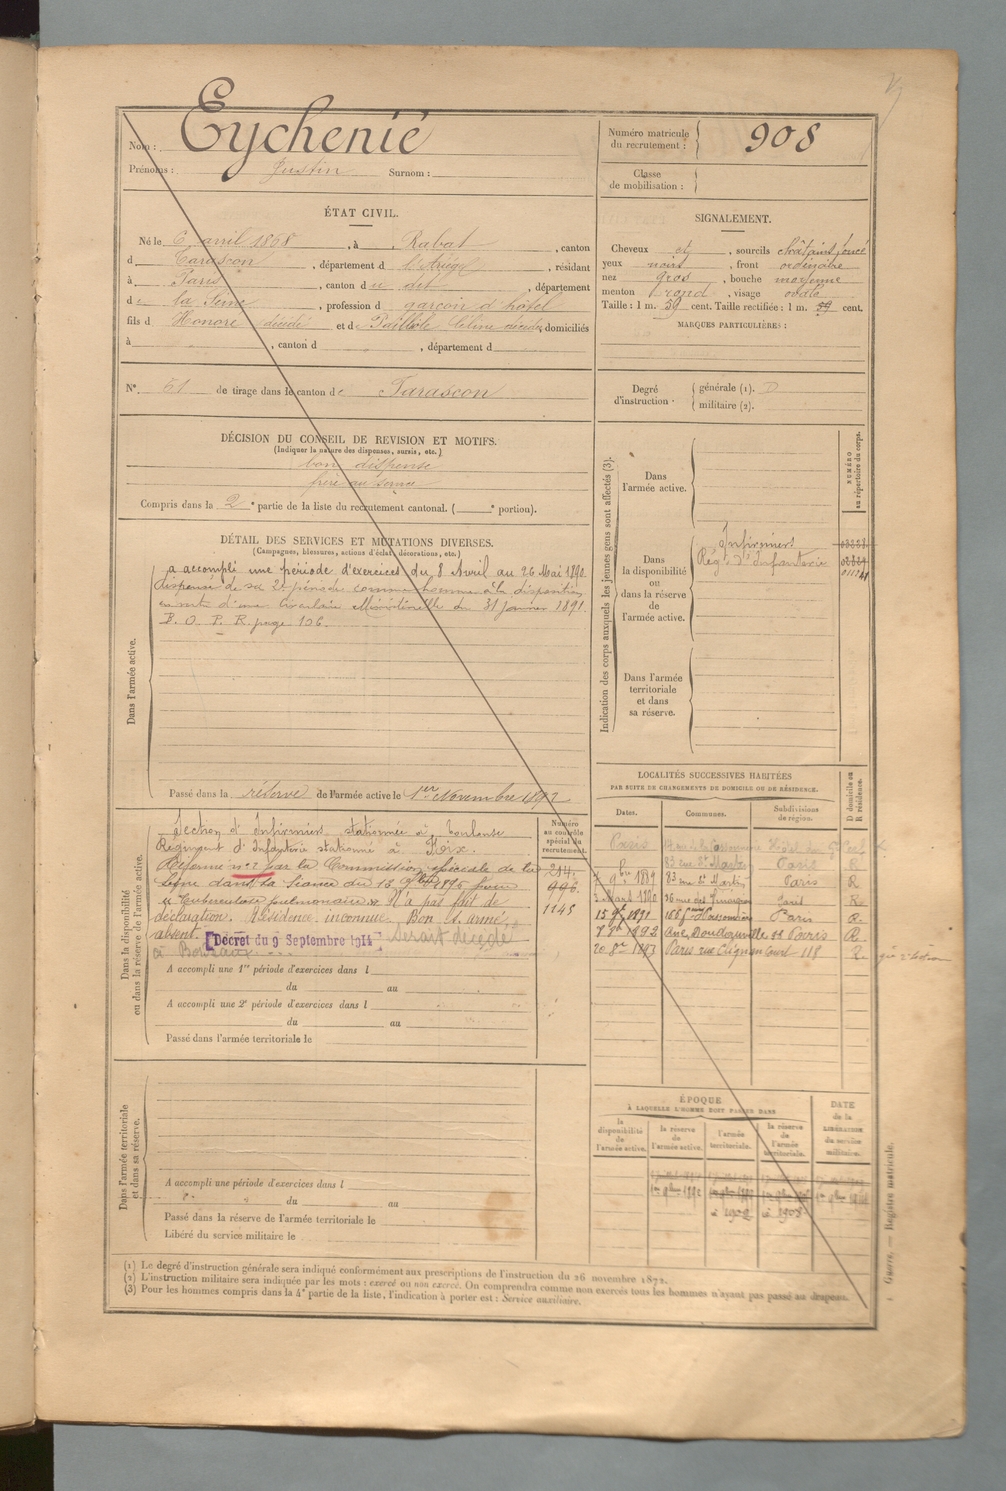 Nom : Eychenié
Prénoms : Justin Surnom :
Numéro matricule du recrutement : 908
Classe de mobilisation :
ÉTAT CIVIL.
Né le 6 avril 1868, à Rabat, canton
d Tarascon, département d l'Ariège, résidant
à Paris, canton du dit, département
de la Seine, profession d garçon d'hôtel
fils d Honoré décédé et de Paillole Céline décédée domiciliés
à , canton d , département d
N° 51 de tirage dans le canton de Tarascon
SIGNALEMENT.
Cheveux et, sourcils châtains foncé
yeux noirs, front ordinaire
nez gros, bouche moyenne
menton rond, visage ovale
Taille : 1 m. 59 cent. Taille rectifiée : 1 m. 59 cent.
MARQUES PARTICULIÈRES :
Degré d'instruction
générale (1). D
militaire (2).
DÉCISION DU CONSEIL DE REVISION ET MOTIFS.
(Indiquer la nature des dispenses, sursis, etc.)
bon dispensé
frère au service
Compris dans la 2e partie de la liste du recrutement cantonal. ( e portion).
DÉTAIL DES SERVICES ET MUTATIONS DIVERSES.
(Campagnes, blessures, actions d'éclat, décorations, etc.)
Dans l'armée active.
a accompli une période d'exercices du 8 Avril au 26 Mai 1890
dispensé de sa 2e période comme homme à la disposition
en vertu d'une Circulaire Ministérielle du 31 janvier 1891.
B. O. P. R. page 106.
Passé dans la réserve de l'armée active le 1er Novembre 1892
Indication des corps auxquels les jeunes gens sont affectés (3).
NUMÉRO au répertoire du corps.
Dans l'armée active.
Dans la disponibilité ou dans la réserve de l'armée active.
Infirmiers
Régt d'Infanterie
Dans l'armée territoriale et dans sa réserve.
Dans la disponibilité ou dans la réserve de l'armée active.
Numéro au contrôle spécial du recrutement.
Section d'Infirmiers stationnée à Toulouse
Régiment d'Infanterie stationné à Foix.
Réformé n° 2 par la Commission spéciale de la
Seine dans sa séance du 15 9bre 1895 pour
Tuberculose pulmonaire. N'a pas fait de
déclaration. Résidence inconnue. Bon S. armé,
absent. Décret du 9 Septembre 1914 Serait décédé
214
996
1145
A accompli une 1re période d'exercices dans l
du au
A accompli une 2e période d'exercices dans l
du au
Passé dans l'armée territoriale le
LOCALITÉS SUCCESSIVES HABITÉES
PAR SUITE DE CHANGEMENTS DE DOMICILE OU DE RÉSIDENCE.
Dates. Communes. Subdivisions de région. D domicile ou R résidence.
Paris
83 rue St Martin Paris R
9bre 1889 83 rue St Martin Paris R
Paris R
1891 Paris R
1892 Rue Doudeauville Paris R
20 8bre 1893 Paris rue Clignancourt 118 R
Dans l'armée territoriale et dans sa réserve.
A accompli une période d'exercices dans l
du au
Passé dans la réserve de l'armée territoriale le
Libéré du service militaire le
ÉPOQUE
À LAQUELLE L'HOMME DOIT PASSER DANS
la disponibilité de l'armée active. la réserve de l'armée active. l'armée territoriale. la réserve de l'armée territoriale. DATE de la LIBÉRATION du service militaire.
1er 9bre 1892
à 1902 à 1908
(1) Le degré d'instruction générale sera indiqué conformément aux prescriptions de l'instruction du 26 novembre 1872.
(2) L'instruction militaire sera indiquée par les mots : exercé ou non exercé. On comprendra comme non exercés tous les hommes n'ayant pas passé au drapeau.
(3) Pour les hommes compris dans la 4e partie de la liste, l'indication à porter est : Service auxiliaire.
Guerre. — Registre matricule.